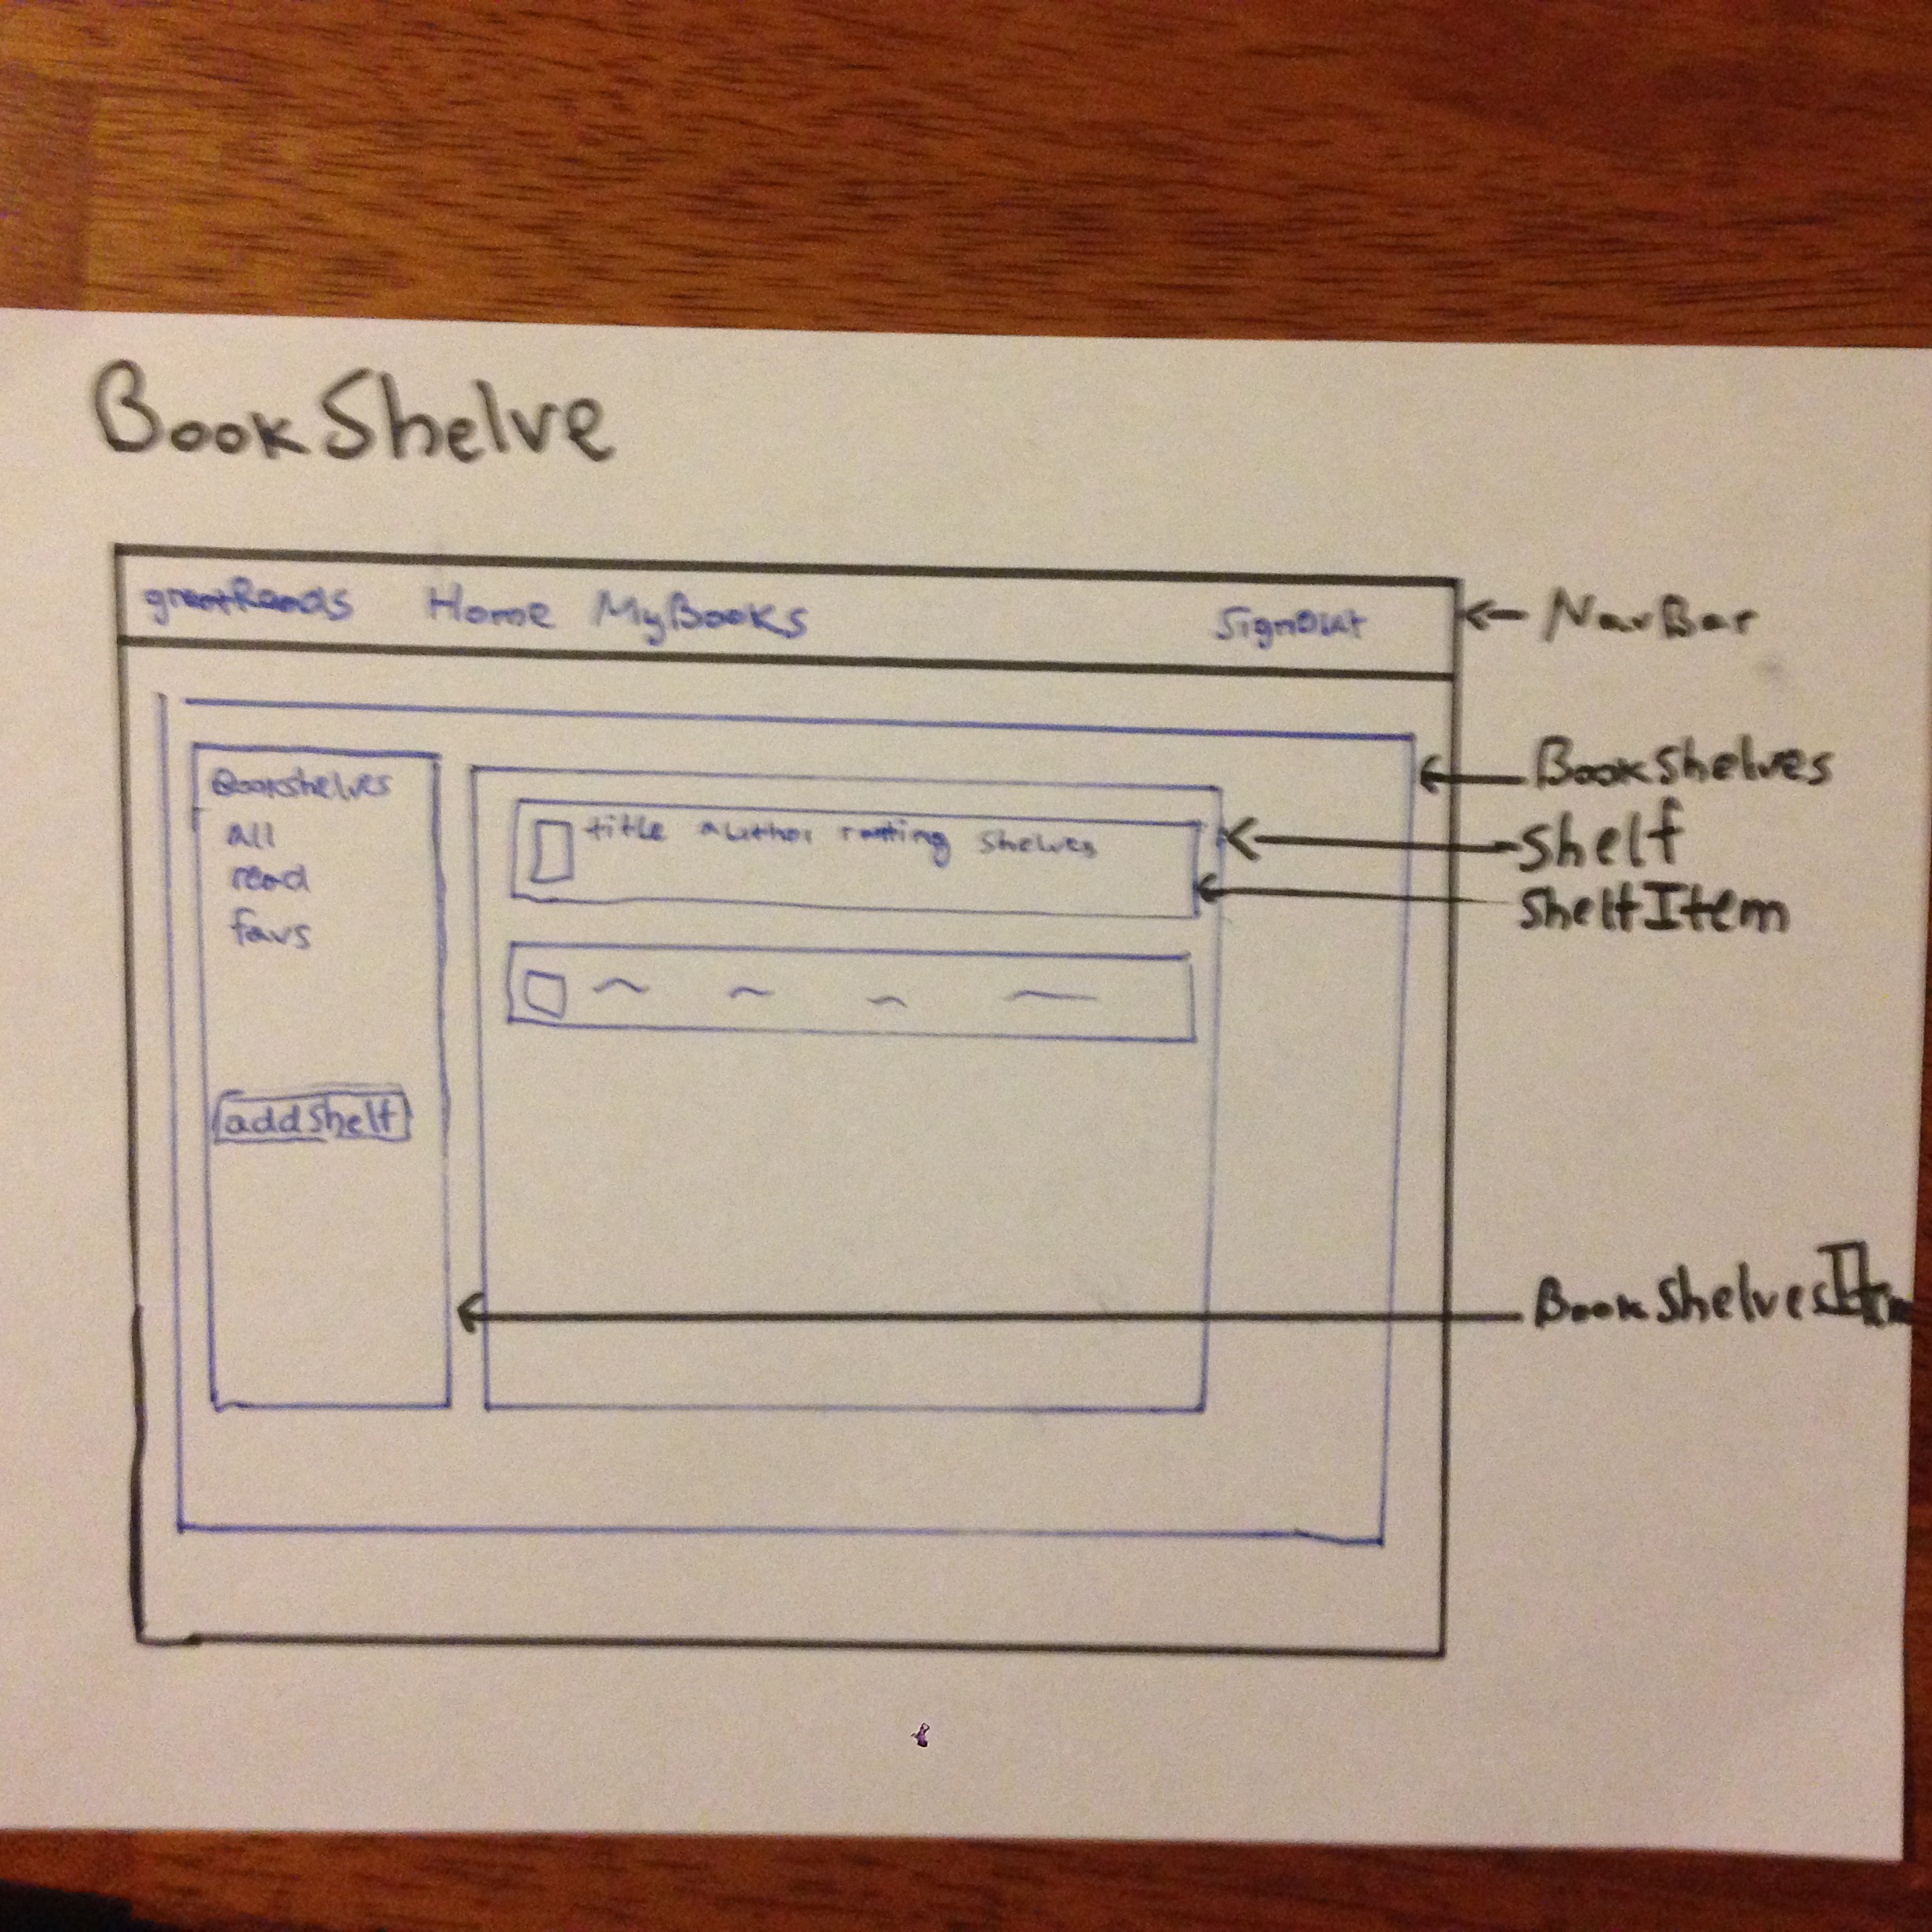 BookShelve
greatReads Home MyBooks SignOut
NavBar
Bookshelves
all
read
favs
addshelf
title author rating shelves
BookShelves
Shelf
ShelfItem
BookShelvesItem